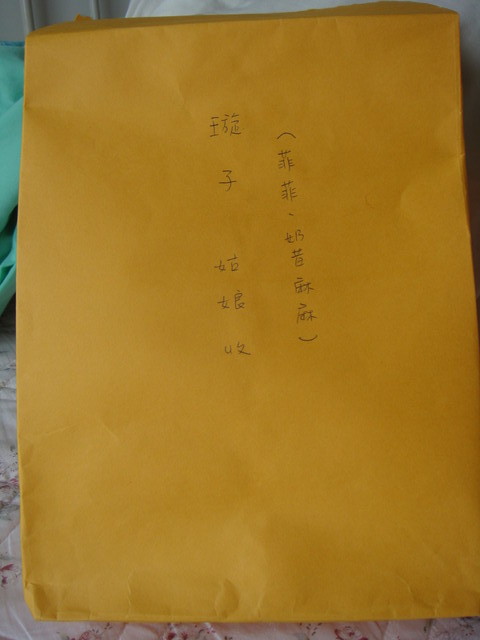 (菲菲、奶昔麻麻)
璇子 姑娘 收